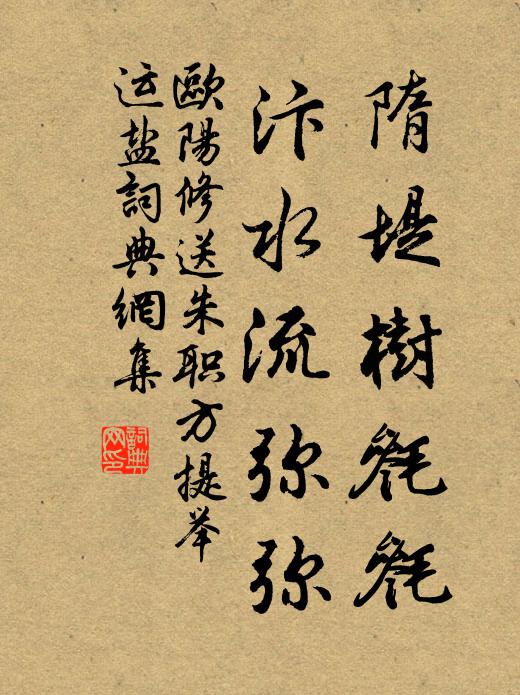 隋堤樹毿毿
汴水流弥弥
歐陽修送朱职方提举
运盐詞典網集
詞典
网印